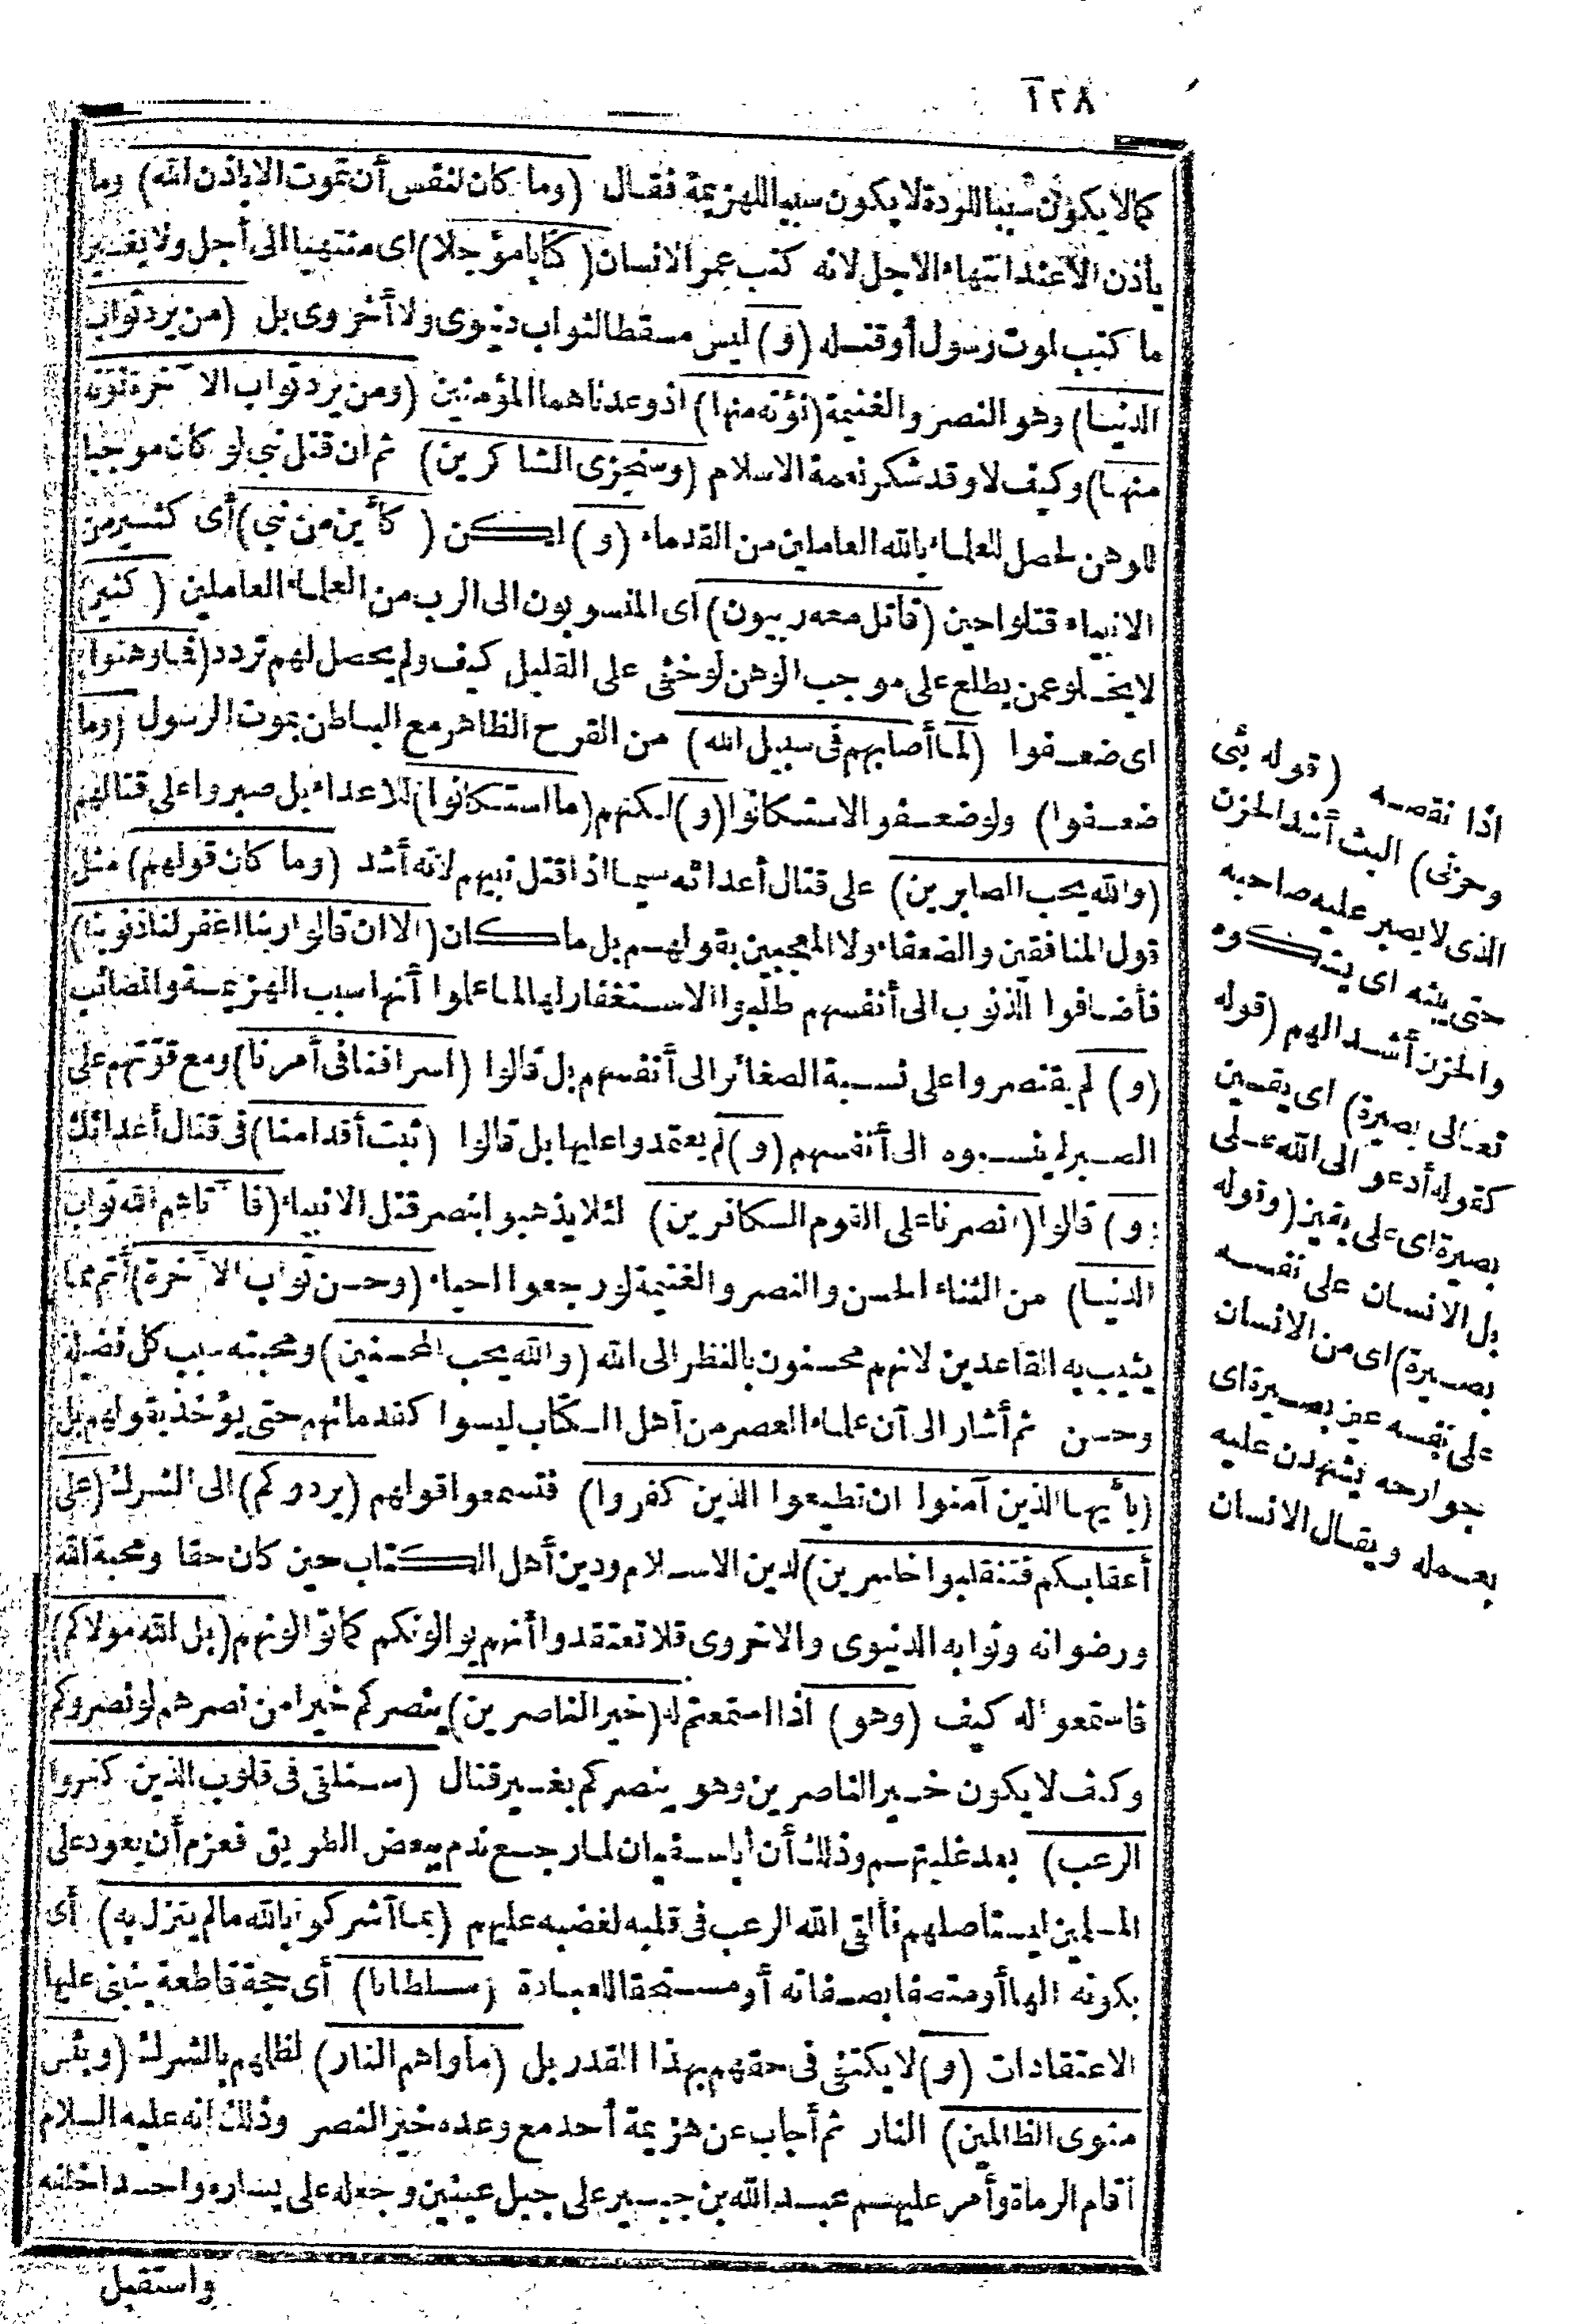 ١٢٨
كما لا يكون سببا للردة لا يكون سببا للهزيمة فقال (وما كان لنفس أن تموت الا باذن الله) وما
يأذن الا عند انتهاء الاجل لانه كتب عمر الانسان (كتابا مؤجلا) اى منتهيا الى أجل ولا يغير
ما كتب لموت رسول أو قتله (و) ليس مسقطا لثواب دنيوى ولا أخروى بل (من يرد ثواب
الدنيا) وهو النصر والغنيمة (نؤته منها) اذ وعدناهما المؤمنين (ومن يرد ثواب الآخرة نؤته
منها) وكيف لا وقد شكر نعمة الاسلام (وسنجزى الشاكرين) ثم ان قتل نبي لو كان موجبا
للوهن لحصل للعلماء بالله العاملين من القدماء (و) لكن (كأين من نبي) أى كثير من
الانبياء قتلوا حين (قاتل معه ربيون) اى المنسوبون الى الرب من العلماء العاملين (كثير)
لا يخلو عمن يطلع على موجب الوهن لو خفى على القليل كيف ولم يحصل لهم تردد (فما وهنوا)
اى ضعفوا (لما أصابهم فى سبيل الله) من القرح الظاهر مع الباطن بموت الرسول (وما
ضعفوا) ولو ضعفوا لاستكانوا (و) لكنهم (ما استكانوا) للاعداء بل صبروا على قتالهم
(والله يحب الصابرين) على قتال أعدائه سيما اذا قتل نبيهم لانه أشد (وما كان قولهم) مثل
قول المنافقين والضعفاء ولا المعجبين بقولهم بل ما كان (الا ان قالوا ربنا اغفر لنا ذنوبنا)
فأضافوا الذنوب الى أنفسهم طلبوا الاستغفار لها لما علموا أنها سبب الهزيمة والمصائب
(و) لم يقتصروا على نسبة الصغائر الى أنفسهم بل قالوا (اسرافنا فى أمرنا) ومع قوتهم على
الصبر لم ينسبوه الى أنفسهم (و) لم يعتمدوا عليها بل قالوا (ثبت أقدامنا) فى قتال أعدائك
(و) قالوا (انصرنا على القوم الكافرين) لئلا يذهبوا بنصر قتل الانبياء (فآتاهم الله ثواب
الدنيا) من الثناء الحسن والنصر والغنيمة لو رجعوا احياء (وحسن ثواب الآخرة) أتم مما
يثيب به القاعدين لانهم محسنون بالنظر الى الله (والله يحب المحسنين) ومحبته سبب كل فضيلة
وحسن ثم أشار الى أن علماء العصر من أهل الكتاب ليسوا كقدمائهم حتى يؤخذ بقولهم بل
(يا أيها الذين آمنوا ان تطيعوا الذين كفروا) فتسمعوا قولهم (يردوكم) الى الشرك (على
أعقابكم فتنقلبوا خاسرين) لدين الاسلام ودين أهل الكتاب حين كان حقا ومحبة الله
ورضوانه وثوابه الدنيوى والاخروى فلا تعتقدوا أنهم يوالونكم كما توالونهم (بل الله مولاكم)
فاستمعوا له كيف (وهو) اذا استمعتم له (خير الناصرين) ينصركم خيرا من نصرهم لو نصروكم
وكيف لا يكون خير الناصرين وهو ينصركم بغير قتال (سنلقى فى قلوب الذين كفروا
الرعب) بعد غلبتهم وذلك أن أبا سفيان لما رجع ندم ببعض الطريق فعزم أن يعود على
المسلمين ليستاصلهم فألقى الله الرعب فى قلبه لغضبه عليهم (بما أشركوا بالله ما لم ينزل به) أى
بكونه الها أو متصفا بصفاته أو مستحقا للعبادة (سلطانا) أى حجة قاطعة يبتنى عليها
الاعتقادات (و) لا يكتفى فى حقهم بهذا القدر بل (مأواهم النار) لظلمهم بالشرك (وبئس
مثوى الظالمين) النار ثم أجاب عن هزيمة أحد مع وعده خير النصر وذلك انه عليه السلام
أقام الرماة وأمر عليهم عبد الله بن جبير على جبل عينين وجعله على يساره واحدا خلفه
واستقبل
اذا نقصه (قوله بثى
وحزنى) البث أشد الحزن
الذى لا يصبر عليه صاحبه
حتى يبثه اى يشكوه
والحزن أشد الهم (قوله
تعالى بصيرة) اى يقين
كقوله أدعو الى الله على
بصيرة اى على يقين (وقوله
بل الانسان على نفسه
بصيرة) اى من الانسان
على نفسه عين بصيرة اى
جوارحه يشهدن عليه
بعمله ويقال الانسان